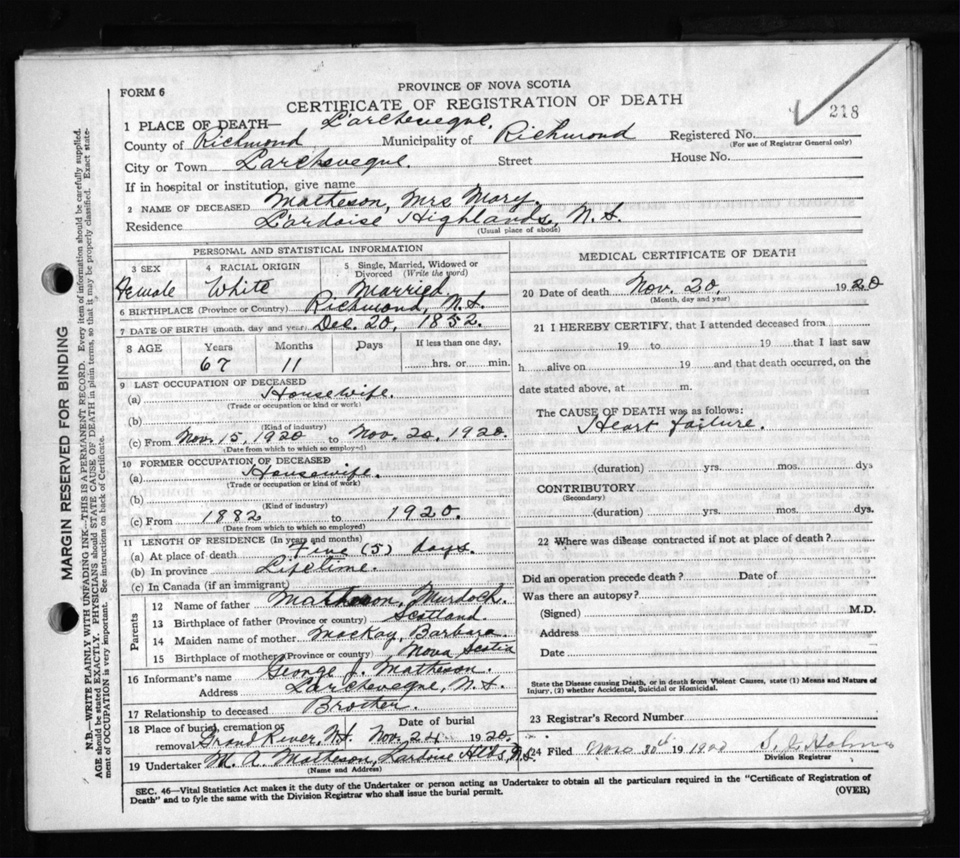 PROVINCE OF NOVA SCOTIA
FORM 6
CERTIFICATE OF REGISTRATION OF DEATH
218
1 PLACE OF DEATH— L'archeveque,
County of Richmond Municipality of Richmond Registered No.
(For use of Registrar General only)
City or Town L'archeveque. Street House No.
If in hospital or institution, give name
2 NAME OF DECEASED Matheson, Mrs Mary,
Residence L'ardoise Highlands, N.S.
(Usual place of abode)
PERSONAL AND STATISTICAL INFORMATION
3 SEX 4 RACIAL ORIGIN 5 Single, Married, Widowed or Divorced (Write the word)
Female White Married.
6 BIRTHPLACE (Province or Country) Richmond, N.S.
7 DATE OF BIRTH (month, day and year) Dec. 20, 1852.
8 AGE Years Months Days If less than one day,
67 11 hrs. or min.
9 LAST OCCUPATION OF DECEASED
(a) Housewife.
(Trade or occupation or kind or work)
(b)
(Kind of industry)
(c) From Nov. 15, 1920 to Nov. 20, 1920.
(Date from which to which so employed)
10 FORMER OCCUPATION OF DECEASED
(a) Housewife.
(Trade or occupation or kind of work)
(b)
(Kind of industry)
(c) From 1882 to 1920.
(Date from which to which so employed)
11 LENGTH OF RESIDENCE (In years and months)
(a) At place of death Five (5) days.
(b) In province Lifetime.
(c) In Canada (if an immigrant)
Parents
12 Name of father Matheson, Murdoch.
13 Birthplace of father (Province or country) Scotland
14 Maiden name of mother MacKay, Barbara.
15 Birthplace of mother (Province or country) Nova Scotia
16 Informant's name George J. Matheson.
Address L'archeveque, N.S.
17 Relationship to deceased Brother.
18 Place of burial, cremation or removal Grand River, N.S. Date of burial Nov. 24 1920.
19 Undertaker M. A. Matheson, Lardoise Hlds, N.S.
(Name and Address)
MEDICAL CERTIFICATE OF DEATH
20 Date of death Nov. 20, 1920
(Month, day and year)
21 I HEREBY CERTIFY, that I attended deceased from
19 to 19 that I last saw
h alive on 19 and that death occurred, on the
date stated above, at m.
The CAUSE OF DEATH was as follows:
Heart failure.
(duration) yrs. mos. dys
CONTRIBUTORY
(Secondary)
(duration) yrs. mos. dys.
22 Where was disease contracted if not at place of death?
Did an operation precede death? Date of
Was there an autopsy?
(Signed) M.D.
Address
Date
State the Disease causing Death, or in death from Violent Causes, state (1) Means and Nature of
Injury, (2) whether Accidental, Suicidal or Homicidal.
23 Registrar's Record Number
24 Filed Nov 30th 1920
Division Registrar
SEC. 46—Vital Statistics Act makes it the duty of the Undertaker or person acting as Undertaker to obtain all the particulars required in the "Certificate of Registration of
Death" and to fyle the same with the Division Registrar who shall issue the burial permit. (OVER)
MARGIN RESERVED FOR BINDING
N.B.—WRITE PLAINLY WITH UNFADING INK—THIS IS A PERMANENT RECORD. Every item of information should be carefully supplied.
AGE should be stated EXACTLY. PHYSICIANS should STATE CAUSE OF DEATH in plain terms, so that it may be properly classified. Exact state-
ment of OCCUPATION is very important. See instructions on back of Certificate.